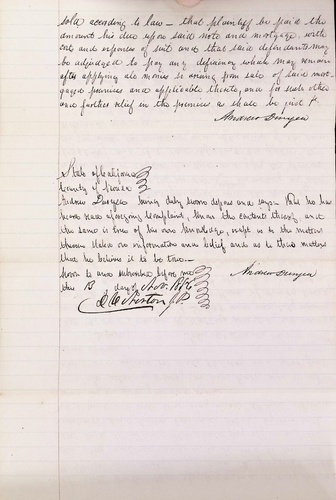 sold according to law — that plaintiff be paid the
amount his due upon said note and mortgage, with
cost and expenses of suit and that said defendants may
be adjudged to pay any deficiency which may remain
after applying all monies arising from sale of said mort-
gaged premises and applicable thereto, and for such other
and further relief in the premises as shall be just &.
Andrew
State of California
County of
Andrew being duly sworn deposes and says that he has
heard read foregoing complaint knows the contents thereof and
the same is true of his own knowledge, except as to the matters
therein stated on information and belief and as to those matters
that he believes it to be true —
Sworn to and subscribed before me
this 13 day of Nov.
Andrew
J.P.